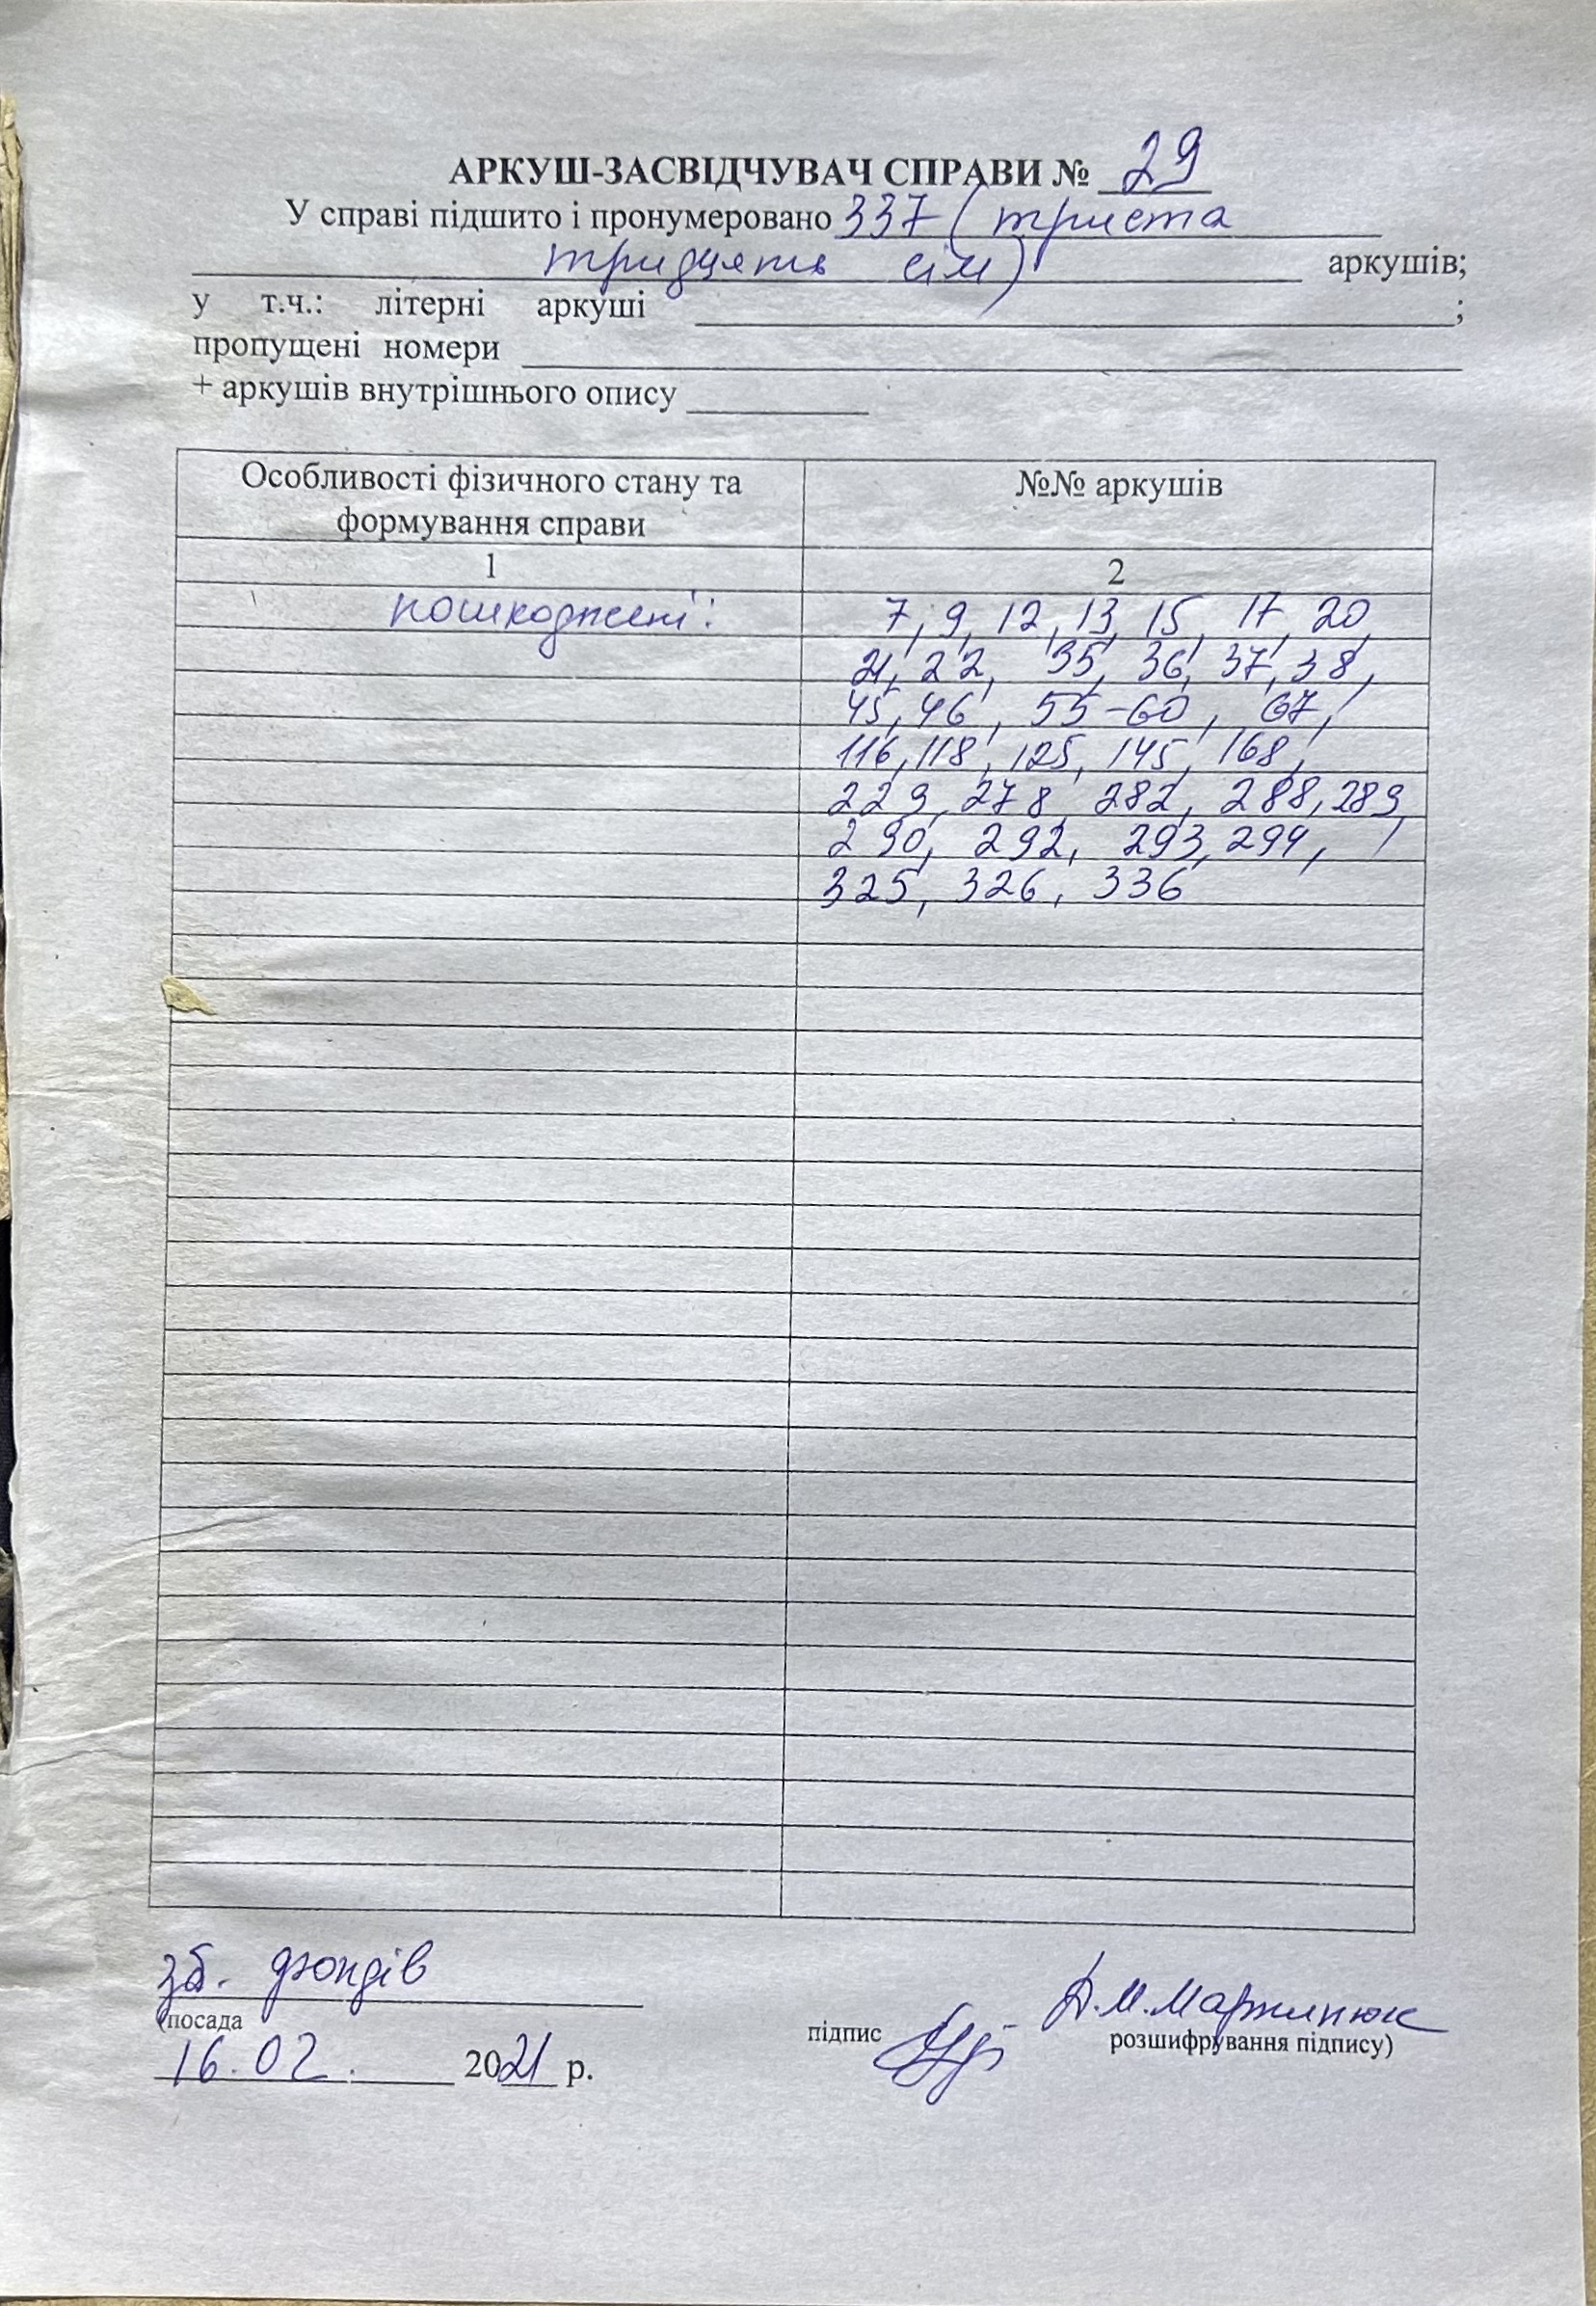 АРКУШ-ЗАСВІДЧУВАЧ СПРАВИ № 29
У справі підшито і пронумеровано 337 (триста
тридцять сім) аркушів;
у т.ч.: літерні аркуші ;
пропущені номери
+ аркушів внутрішнього опису
Особливості фізичного стану та формування справи №№ аркушів
1 2
пошкоджені: 7, 9, 12, 13, 15, 17, 20,
21, 22, 35, 36, 37, 38,
45, 46, 55-60, 67,
116, 118, 125, 145, 168,
229, 278, 282, 288, 289,
290, 292, 293, 294,
325, 326, 336
зб. фондів
(посада підпис розшифрування підпису)
16.02. 2021 р.